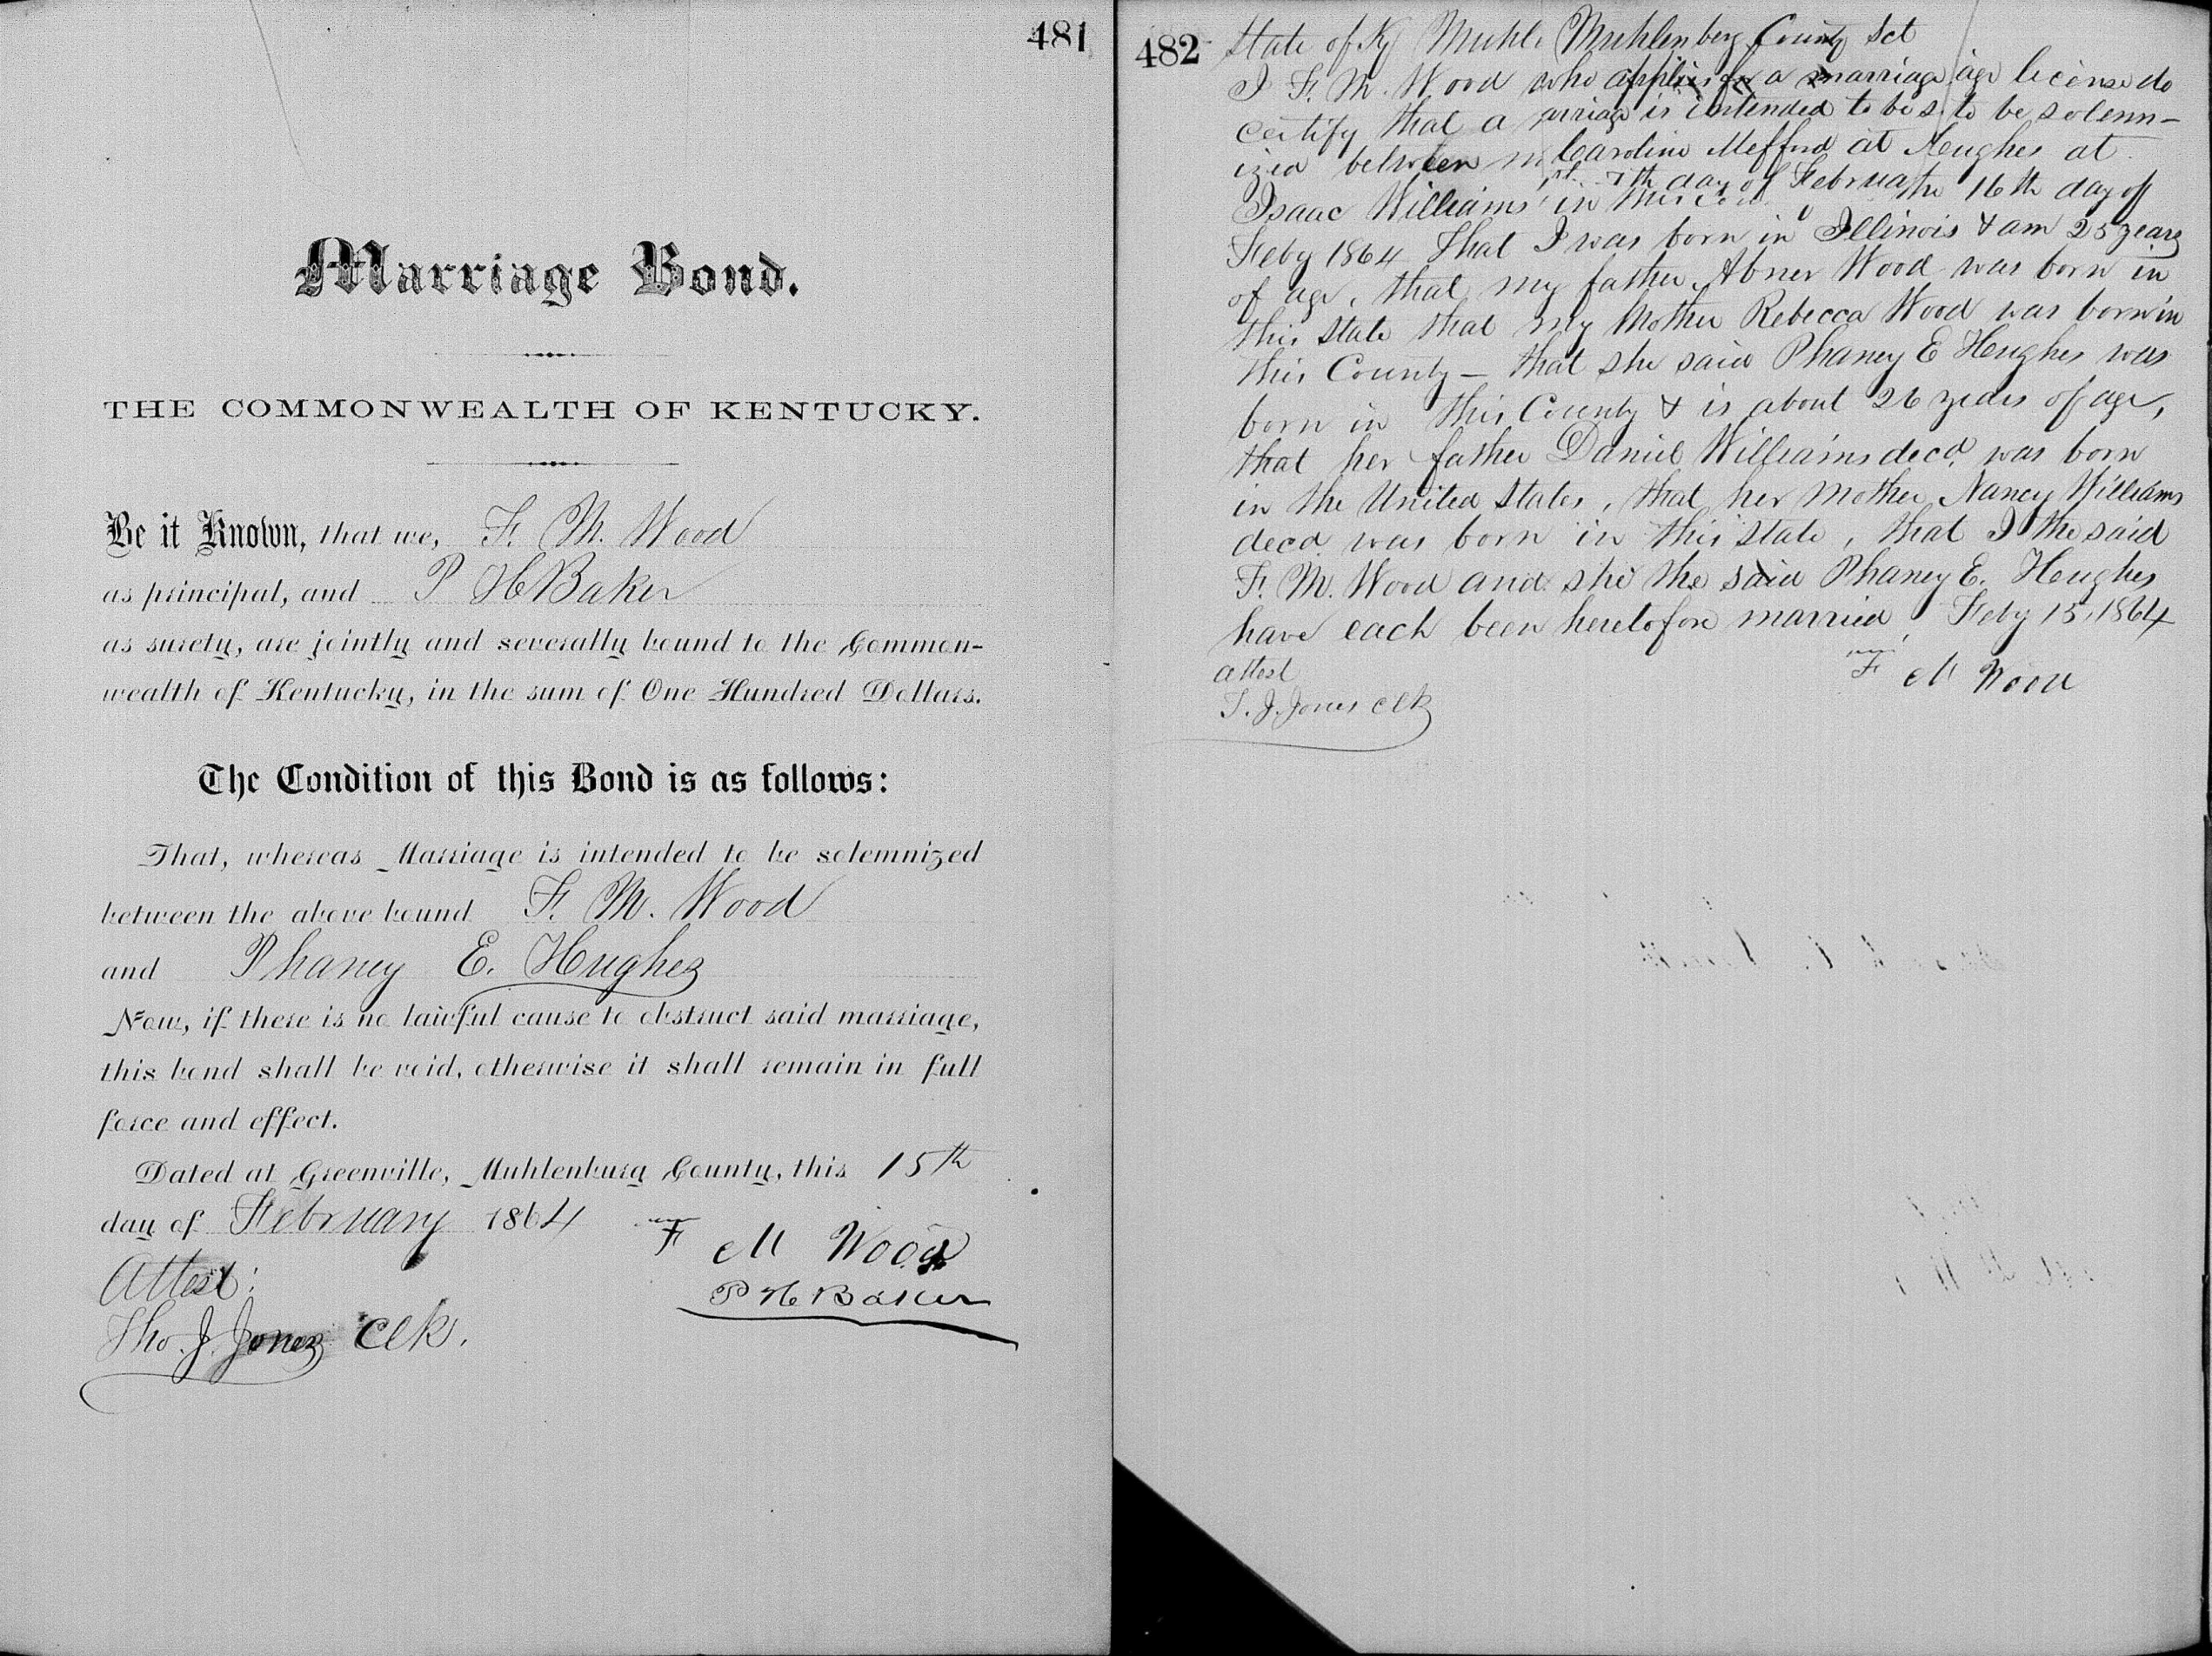 481
Marriage Bond.
THE COMMONWEALTH OF KENTUCKY.
Be it Known, that we, F. M. Wood
as principal, and P H Baker
as surety, are jointly and severally bound to the Common-
wealth of Kentucky, in the sum of One Hundred Dollars.
The Condition of this Bond is as follows:
That, whereas Marriage is intended to be solemnized
between the above bound F. M. Wood
and Phaney E. Hughes
Now, if there is no lawful cause to obstruct said marriage,
this bond shall be void, otherwise it shall remain in full
force and effect.
Dated at Greenville, Muhlenburg County, this 15th
day of February 1864
F M Wood
P H Baker
Attest:
Tho. J. Jones Clk.
482
State of Ky Muhl Muhlenberg County Sct
I F. M. Wood who applies for a marriage age license do
certify that a arriage is intended to be s to be solemn-
ized between m Caroline Mefford at Hughes at
Isaac Williams in this 7th day of Februa the 16th day of
Feby 1864 That I was born in Illinois & am 25 years
of age, that my father Abner Wood was born in
this State that my Mother Rebecca Wood was born in
this County - that she said Phaney E Hughes was
born in this County & is about 26 years of age,
that her father Daniel Williams decd. was born
in the United States, that her Mother Nancy Williams
decd. was born in this State, that I the said
F. M. Wood and she the said Phaney E. Hughes
have each been heretofore married, Feby 15, 1864
F M Wood
attest
T. J. Jones clk